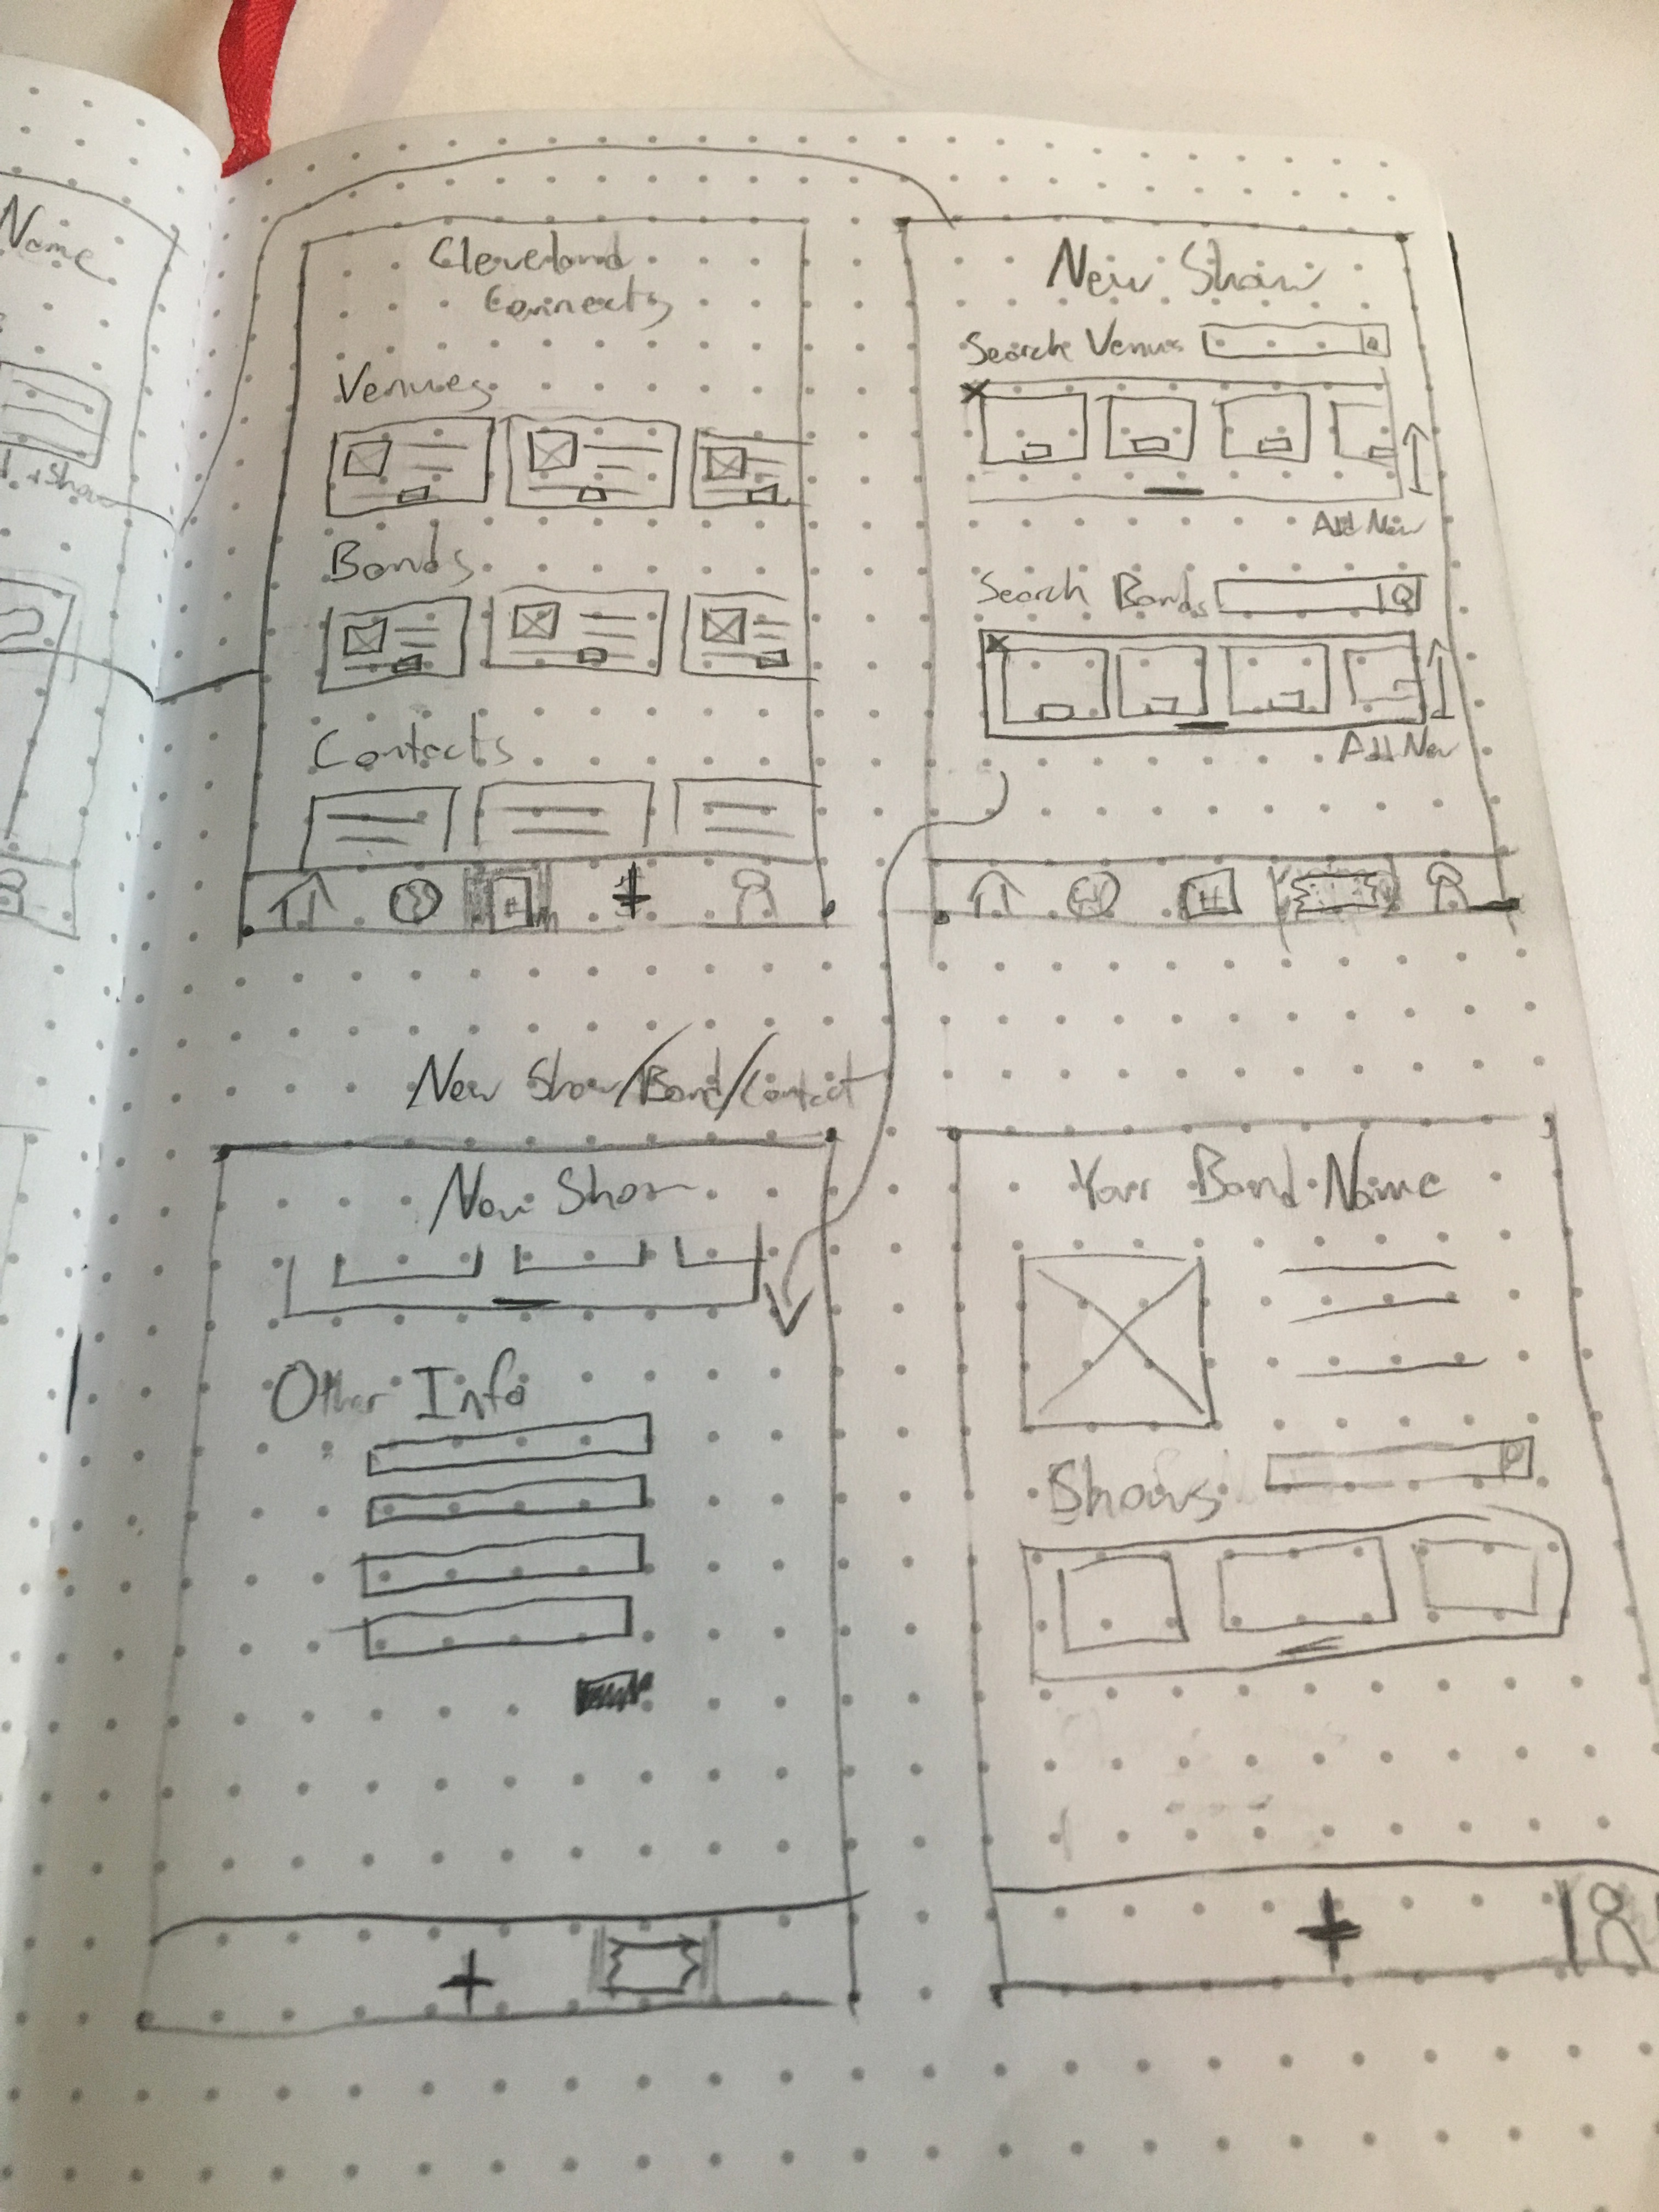 Name
Cleveland
Connects
Venues
Bands
Contacts
New Show
Search Venues
Add New
Search Bands
Add New
New Show/Band/Contact
New Show
Other Info
Your Band Name
Shows